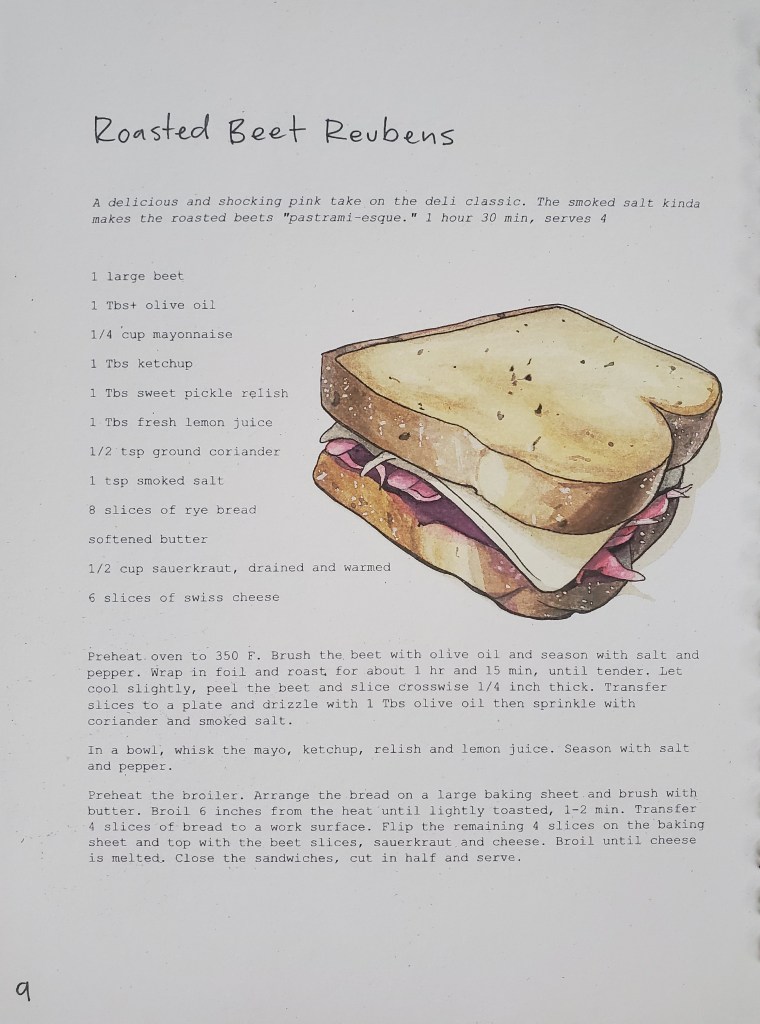 Roasted Beet Reubens
A delicious and shocking pink take on the deli classic. The smoked salt kinda
makes the roasted beets "pastrami-esque." 1 hour 30 min, serves 4
1 large beet
1 Tbs+ olive oil
1/4 cup mayonnaise
1 Tbs ketchup
1 Tbs sweet pickle relish
1 Tbs fresh lemon juice
1/2 tsp ground coriander
1 tsp smoked salt
8 slices of rye bread
softened butter
1/2 cup sauerkraut, drained and warmed
6 slices of swiss cheese
Preheat oven to 350 F. Brush the beet with olive oil and season with salt and
pepper. Wrap in foil and roast for about 1 hr and 15 min, until tender. Let
cool slightly, peel the beet and slice crosswise 1/4 inch thick. Transfer
slices to a plate and drizzle with 1 Tbs olive oil then sprinkle with
coriander and smoked salt.
In a bowl, whisk the mayo, ketchup, relish and lemon juice. Season with salt
and pepper.
Preheat the broiler. Arrange the bread on a large baking sheet and brush with
butter. Broil 6 inches from the heat until lightly toasted, 1-2 min. Transfer
4 slices of bread to a work surface. Flip the remaining 4 slices on the baking
sheet and top with the beet slices, sauerkraut and cheese. Broil until cheese
is melted. Close the sandwiches, cut in half and serve.
9